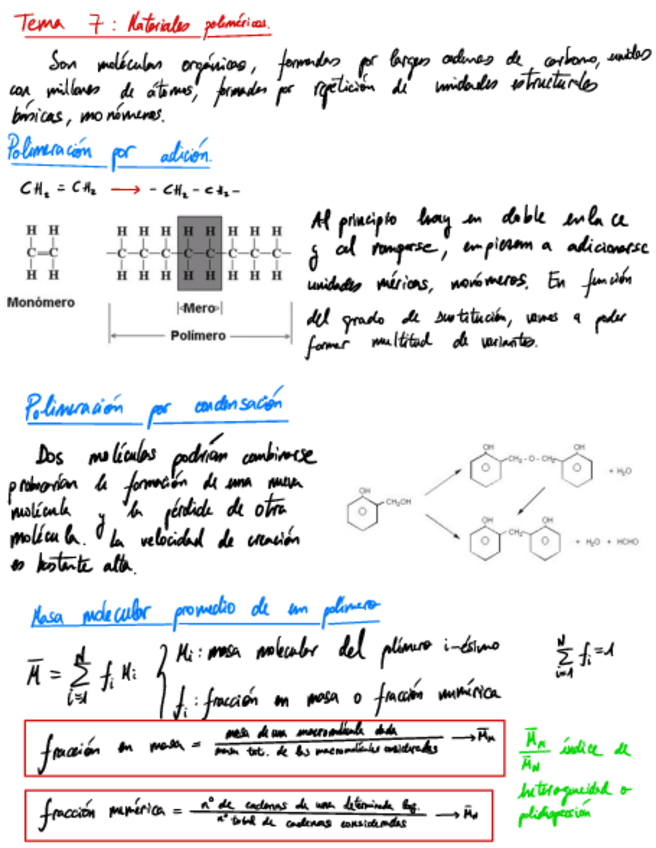 Tema 7: Materiales poliméricos.
Son moléculas orgánicas, formadas por largas cadenas de carbono, unidas
con millones de átomos, formadas por repetición de unidades estructurales
básicas, monómeros.
Polimeración por adición.
CH₂ = CH₂ → - CH₂ - CH₂ -
H H
C=C
H H
Monómero
H H H H H H H
C C C C C C C
H H H H H H H
Mero
Polímero
Al principio hay en doble enlace
y al romperse, empiezan a adicionarse
unidades méricas, monómeros. En función
del grado de sustitución, vamos a poder
formar multitud de variantes.
Polimeración por condensación
Dos moléculas podrían combinarse
la formación de una nueva
molécula y la pérdida de otra
molécula. La velocidad de creación
es bastante alta.
OH
CH₂OH
OH
CH₂-O-CH₂
OH
+ H₂O
OH
CH₂
OH
+ H₂O + HCHO
Masa molecular promedio de un polímero
M̄ = Σ fᵢ Mᵢ
N
i=1
Mᵢ: masa molecular del plímero i-ésimo
fᵢ: fracción en masa o fracción numérica
N
Σ fᵢ=1
i=1
fracción en masa = masa de una macromolécula dada / masa tot. de las macromoléculas consideradas → M̄
fracción numérica = nº de cadenas de una determinada / nº total de cadenas consideradas → M̄
índice de
heterogeneidad o